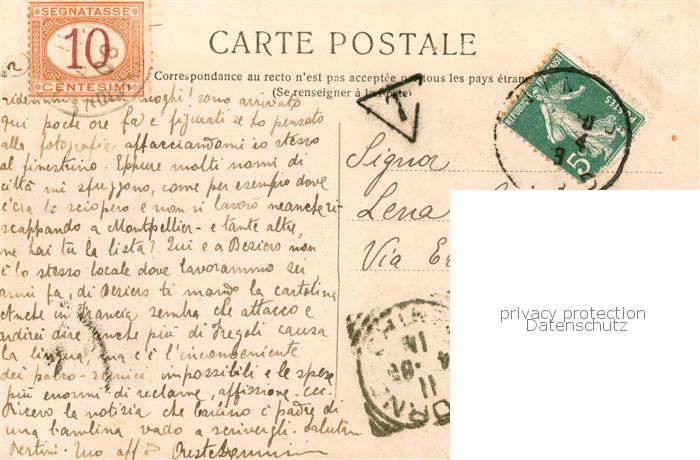 SEGNATASSE
10
CENTESIMI
CARTE POSTALE
Correspondance au recto n'est pas acceptée par tous les pays étran
(Se renseigner à la Poste)
T
REPUBLIQUE FRANÇAISE
POSTES
5
luoghi! sono arrivato
qui poche ore fa e figurati se ho pensato
alla fotografia affacciandomi io stesso
al finestrino. Eppure molti nomi di
città mi sfuggono, come per esempio dove
c'era lo sciopero e non si lavorò neanche ri-
scappando a Montpellier - e tante altre,
ne hai tu la lista? Qui e a Beziers non
è lo stesso locale dove lavorammo sei
anni fa, di Beziers ti mando la cartolina
Anche in Francia sembra che attacco e
andrei dire anche più di Fregoli causa
la lingua, ma c'è l'inconveniente
dei palco-scenici impossibili e le spese
più enormi di reclame, affissione - ecc.
Ricevo la notizia che è padre di
una bambina vado a scrivergli. Salutami
Signa
Lena
Via
11
privacy protection
Datenschutz